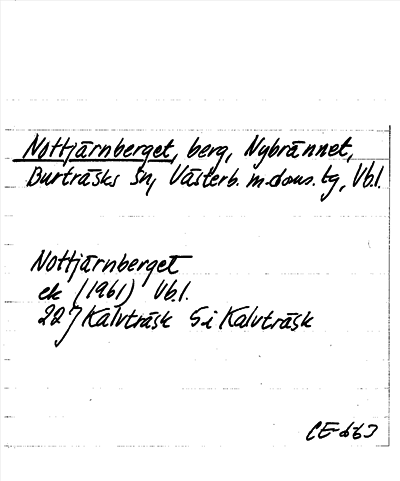 Nottjärnberget, berg, Nybrännet,
Burträsks sn, Västerb. m. doms. tg, Vb.l.
Nottjärnberget
ek (1961) Vb.l.
22J Kalvträsk 5 i Kalvträsk